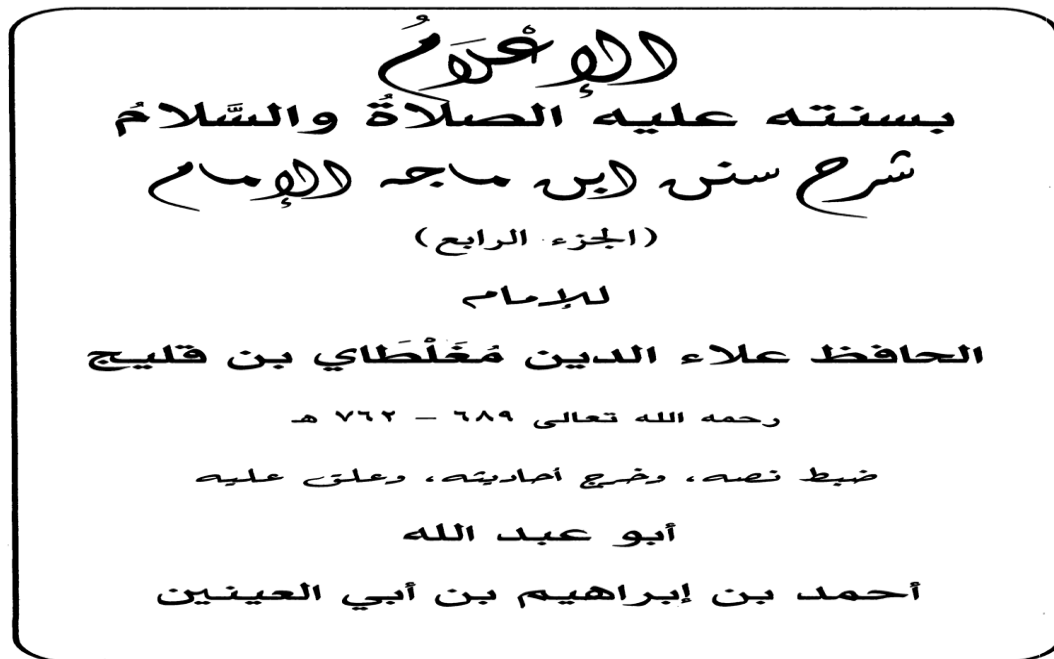 الإِعْلَامُ
بسنته عليه الصلاةُ والسَّلامُ
شرح سنن ابن ماجه الإمام
(الجزء الرابع)
للإمام
الحافظ علاء الدين مُغَلْطَاي بن قليج
رحمه الله تعالى ٦٨٩ – ٧٦٢ هـ
ضبط نصه، وخرج أحاديثه، وعلق عليه
أبو عبد الله
أحمد بن إبراهيم بن أبي العينين